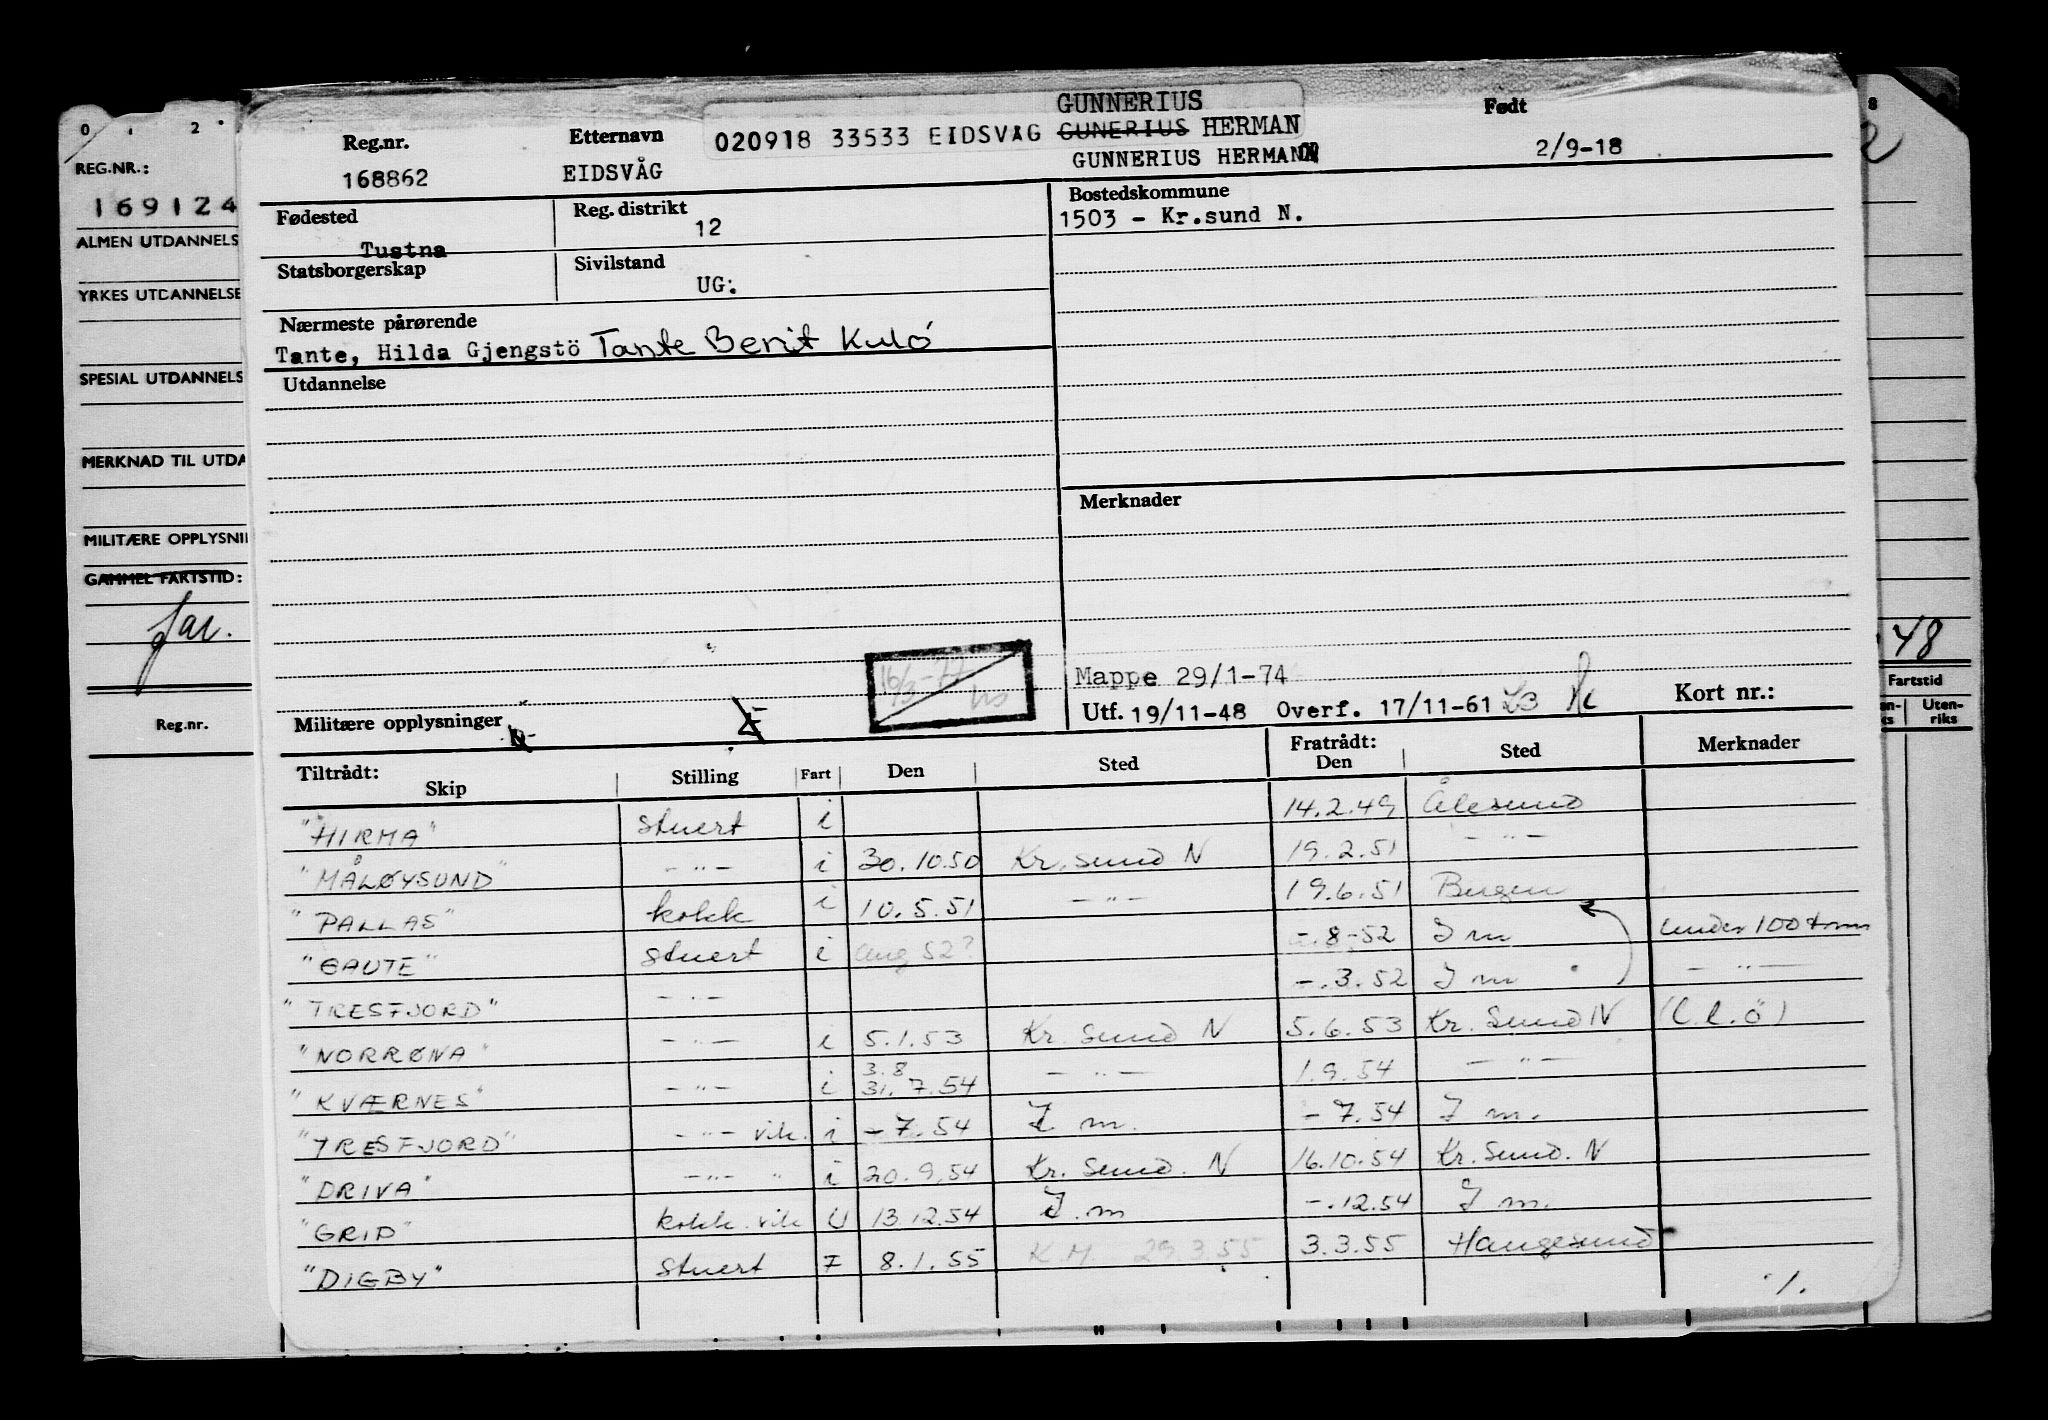 GUNNERIUS
020918 33533 EIDSVAG GUNERIUS HERMAN
Reg.nr. Etternavn Født
168862 EIDSVÅG GUNNERIUS HERMAN 2/9-18
Fødested Reg. distrikt Bostedskommune
Tustna 12 1503 - Kr.sund N.
Statsborgerskap Sivilstand
UG:
Nærmeste pårørende
Tante, Hilda Gjengstö Tante Berit Kulö
Utdannelse
Merknader
16/3-77
Mappe 29/1-74
Militære opplysninger Utf. 19/11-48 Overf. 17/11-61 Kort nr.:
Tiltrådt: Fratrådt:
Skip Stilling Fart Den Sted Den Sted Merknader
"HIRMA" stuert i 14.2.49 Ålesund
"MÅLØYSUND" - " - i 30.10.50 Kr. sund N 19.2.51 - " -
"PALLAS" kokk i 10.5.51 - " - 19.6.51 Bergen
"GAUTE" stuert i aug 52? -.8-52 I m under 100 tonn
"TRESFJORD" - " - -.3.52 I m - " -
"NORRØNA" - " - i 5.1.53 Kr. Sund N 5.6.53 Kr. Sund N (l.l.ö)
3.8
"KVÆRNES" - " - i 31.7.54 - " - 1.9.54 - " -
"TRESFJORD" - " - vik. i -7.54 I m. -7.54 I m.
"DRIVA" - " - " i 20.9.54 Kr. Sund. N 16.10.54 Kr. Sund. N
"GRIP" kokk vik U 13.12.54 I.m -.12.54 I m.
"DIGBY" Stuert F 8.1.55 K.M. 29.3.55 3.3.55 Haugesund
./.
0 1 2
REG.NR.:
169124
ALMEN UTDANNELS
YRKES UTDANNELSE
SPESIAL UTDANNELS
MERKNAD TIL UTDA
MILITÆRE OPPLYSNI
GAMMEL FARTSTID:
Jar.
Reg.nr.
8
2
48
Fartstid
Uten-
riks